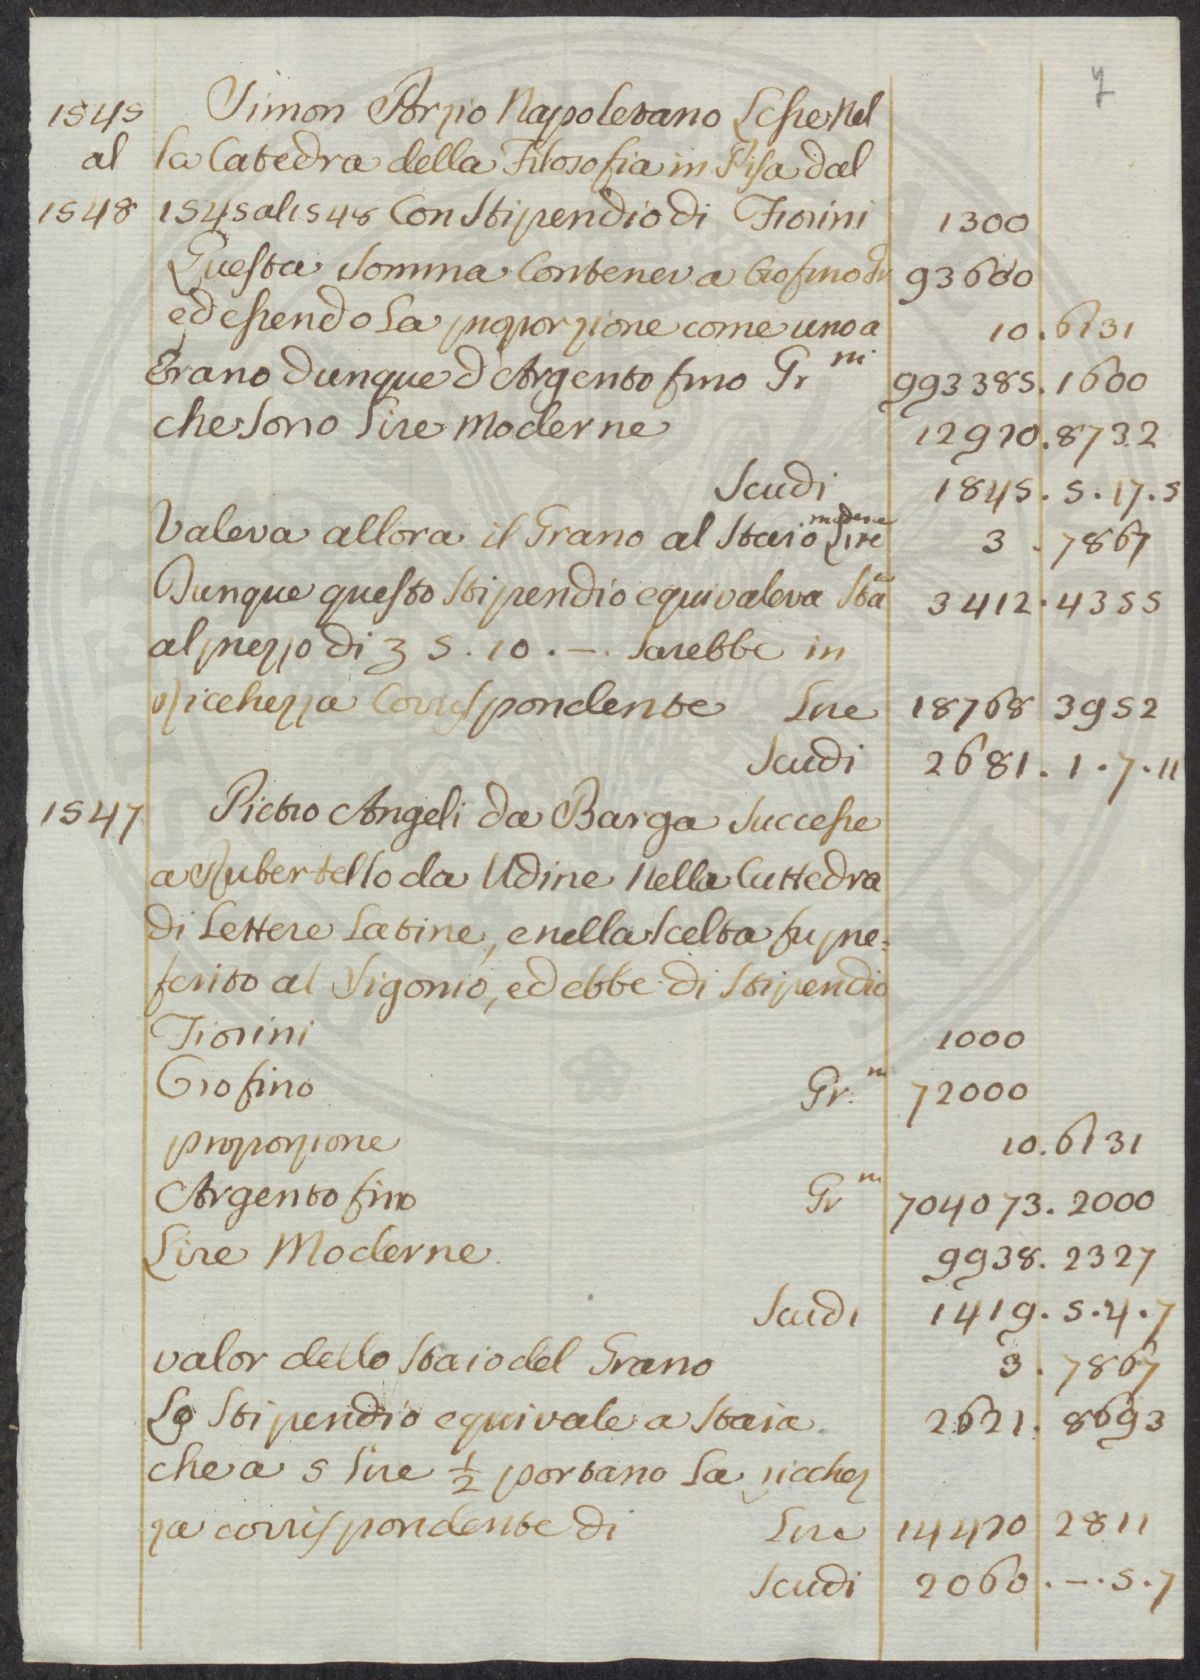 7
1545 Simon Porzio Napoletano Lesse Nel
al la Catedra della Filosofia in Pisa dal
1548 1545 al 1548 Con Stipendio di Fiorini 1300
Questa Somma Conteneva Oro fino Gr 93600
ed essendo La proporzione come uno a 10.6131
Grano dunque d'Argento fino Gr.ni 993385.1600
che Sono Lire Moderne 12920.8732
Scudi 1845.5.17.5
Valeva allora il Grano al Staio moderno Lire 3.7867
Dunque questo Stipendio equivaleva Sta 3412.4355
al prezzo di 5.10.-. Sarebbe in
ricchezza Corrispondente Lire 18768 3952
Scudi 2681.1.7.11
1547 Pietro Angeli da Barga Successe
a Rubertello da Udine Nella Cattedra
di Lettere Latine, e nella Scelta fu pre=
ferito al Sigonio, ed ebbe di Stipendio
Fiorini 1000
Oro fino Gr.ni 72000
proporzione 10.6131
Argento fino Gr.ni 704073.2000
Lire Moderne 9938.2327
Scudi 1419.5.4.7
valor dello Staio del Grano 3.7867
Lo Stipendio equivale a Staia 2621.8693
che a 5 Lire 1/2 portano La ricchez
za corrispondente di Lire 14420 2811
Scudi 2060.-.5.7